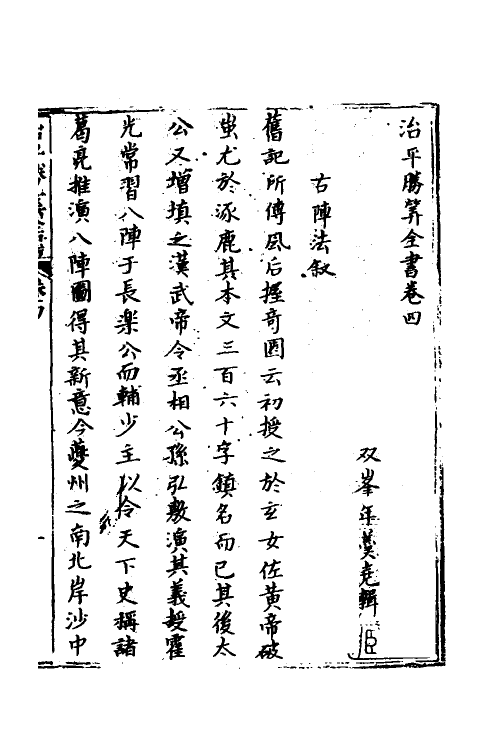 治平勝筭全書卷四
双峯年羮堯輯
古陣法叙
舊記所傳風后握奇圖云初授之於玄女佐黃帝破
蚩尤於涿鹿其本文三百六十字鎮名而已其後太
公又增填之漢武帝令丞相公孫弘敷演其義授霍
光常習八陣于長楽公而輔少主以令天下史稱諸
葛亮推演八陣圖得其新意今夔州之南北岸沙中